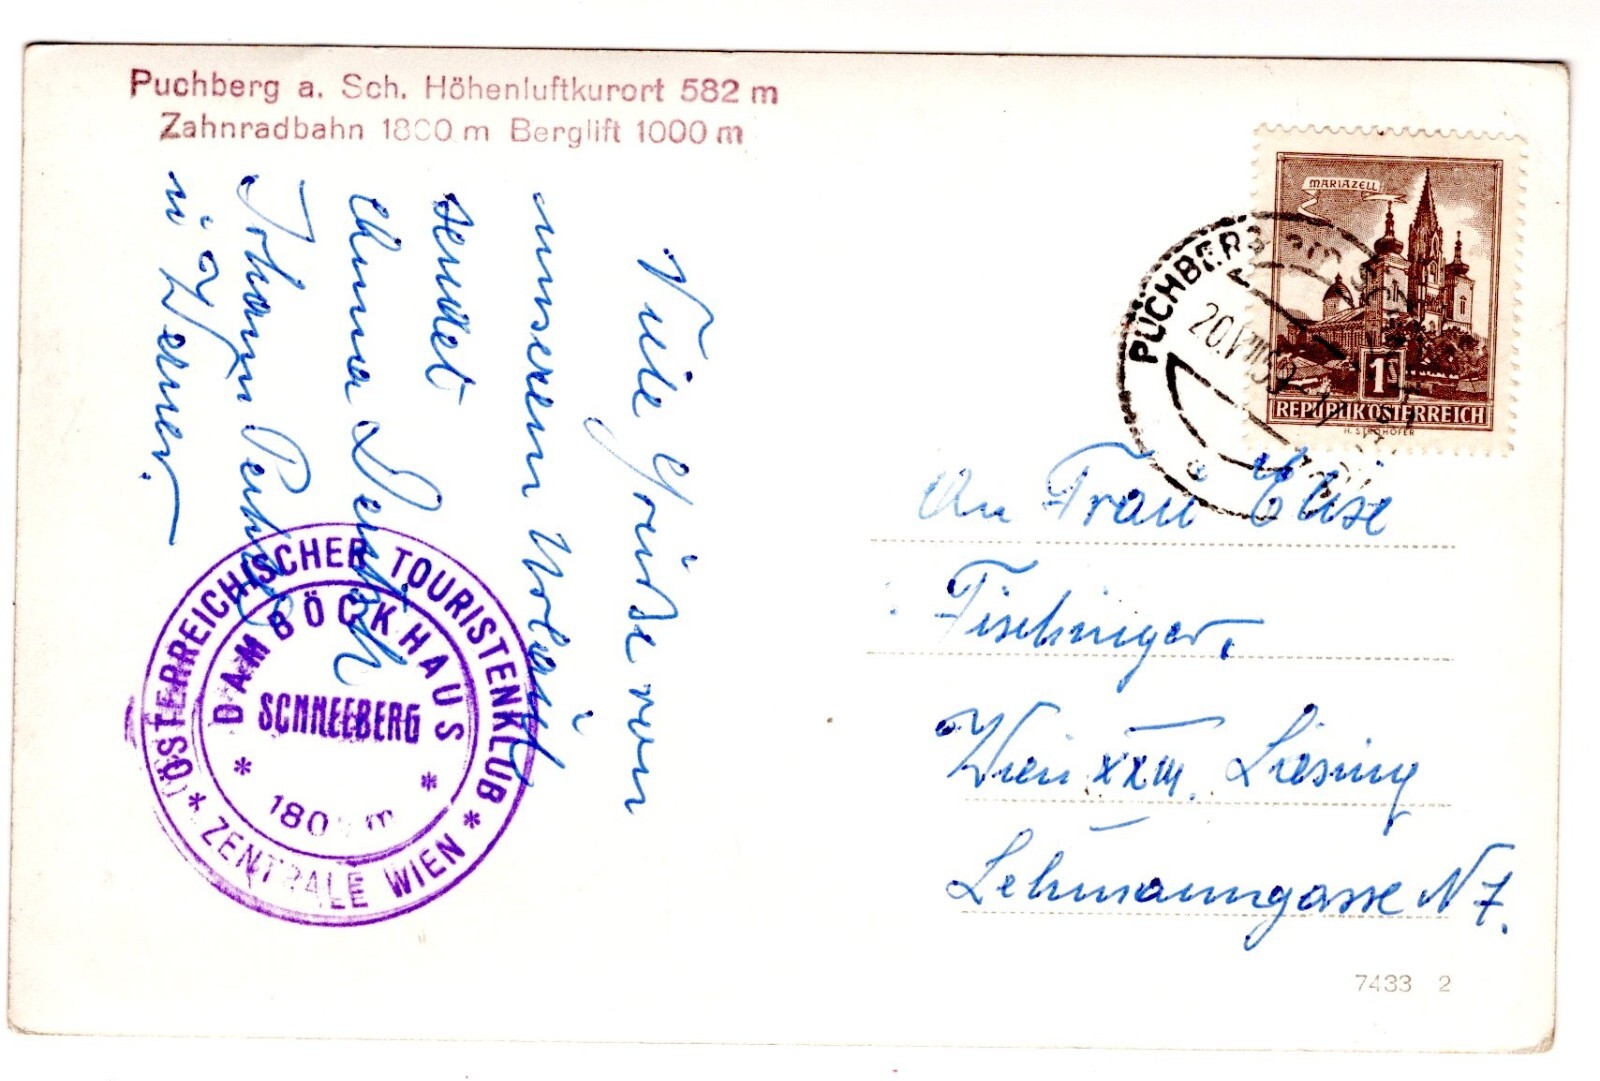 Puchberg a. Sch. Höhenluftkurort 582 m
Zahnradbahn 1800 m Berglift 1000 m
Viele Grüße von
unserem Urlaub
sendet
Anna
Johann
u Werner.
ÖSTERREICHISCHER TOURISTENKLUB
* ZENTRALE WIEN *
DAMBÖCKHAUS
SCHNEEBERG
* 180 m *
MARIAZELL
1S
REPUBLIK ÖSTERREICH
PUCHBERG am SCHNEEBERG
20.VIII.59
An Frau Elise
Fischinger,
Wien XXIII. Liesing
Lehmanngasse N 7.
7433 2